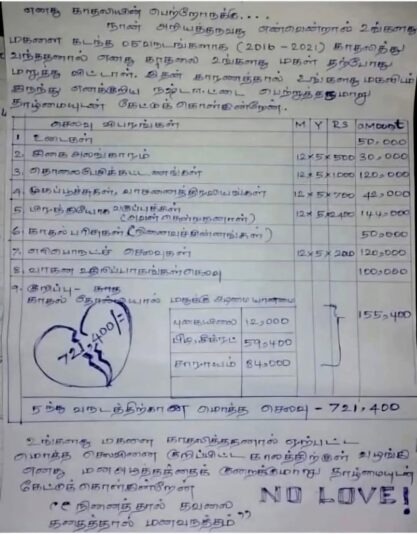 எனது காதலியின் பெற்றோருக்கு...
நான் அறியத்தருவது என்னவென்றால் உங்களது
மகளை கடந்த 05 வருடங்களாக (2016 - 2021) காதலித்து
வந்ததனால் எனது காதலை உங்களது மகள் தற்போது
மறுத்து விட்டாள். இதன் காரணத்தால் உங்களது மகளிடம்
இருந்து எனக்குரிய நஷ்டஈட்டை பெற்றுத்தருமாறு
தாழ்மையுடன் கேட்டுக் கொள்கின்றேன்.
செலவு விபரங்கள் M Y RS amount
1. உடைகள் 50,000
2. சிகை அலங்காரம் 12×5×500 30,000
3. தொலைபேசிக் கட்டணங்கள் 12×5×1000 120,000
4. முகப்பூச்சுகள், வாசனைத்திரவியங்கள் 12×5×700 42,000
5. வகுப்புகள் 12×5×2400 144,000
(அவள் சென்றதனால்)
6. காதல் பரிசுகள் (நினைவுச்சின்னங்கள்) 50,000
7. செலவுகள் 12×5×200 120,000
8. வாகன உதிரிப்பாகங்கள் செலவு 100,000
9. குறிப்பு - காத
காதல் தோல்வியால் மதுக்கு அடிமையானமை
155,400
புகையிலை 12,000
பிடி, சிகரட் 59,400
சாராயம் 84,000
721,400/=
5 ந்து வருடத்திற்கான மொத்த செலவு - 721,400
உங்களது மகளை காதலித்ததனால் ஏற்பட்ட
மொத்த செலவினை குறிப்பிட்ட காலத்திற்குள் வழங்கி
எனது மனஅழுத்தத்தைக் குறைக்குமாறு தாழ்மையுடன்
கேட்டுக் கொள்கின்றேன்
NO LOVE!
"நினைத்தால் கவலை